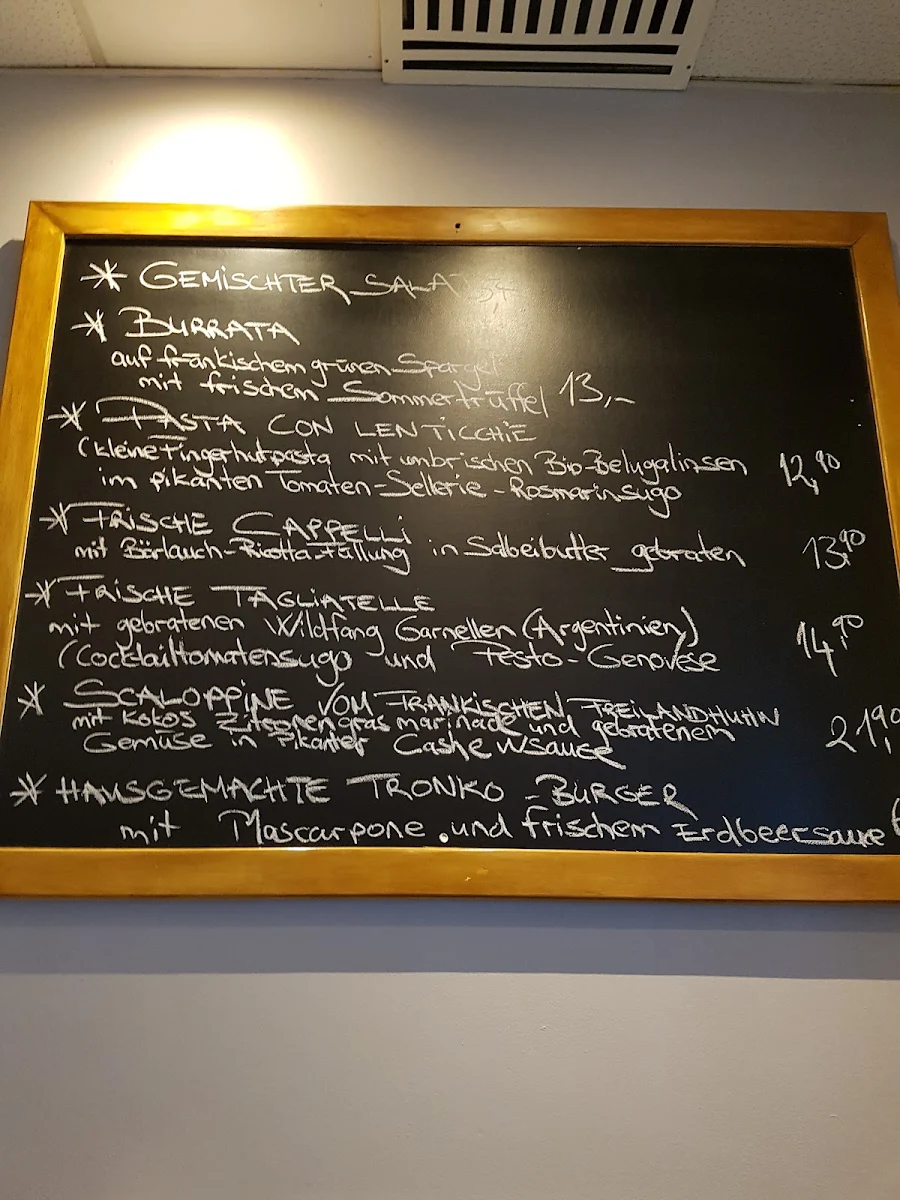 * GEMISCHTER SALAT
* BURRATA
auf fränkischem grünen Spargel
mit frischem Sommertrüffel 13,-
* PASTA CON LENTICCHIE
(kleine Fingerhutpasta mit umbrischen Bio-Belugalinsen 12,90
im pikanten Tomaten-Sellerie-Rosmarinsugo
* FRISCHE CAPPELLI
mit Bärlauch-Ricottafüllung in Salbeibutter gebraten 13,90
* FRISCHE TAGLIATELLE
mit gebratenen Wildfang Garnellen (Argentinien) 14,90
(Cocktailtomatensugo und Pesto-Genovese
* SCALOPPINE VOM FRÄNKISCHEN FREILANDHUHN
mit Kokos Zitronengras marinade und gebratenem 21,90
Gemüse in Pikanter Cashewsauce
* HAUSGEMACHTE TRONKO-BURGER
mit Mascarpone und frischem Erdbeersauce